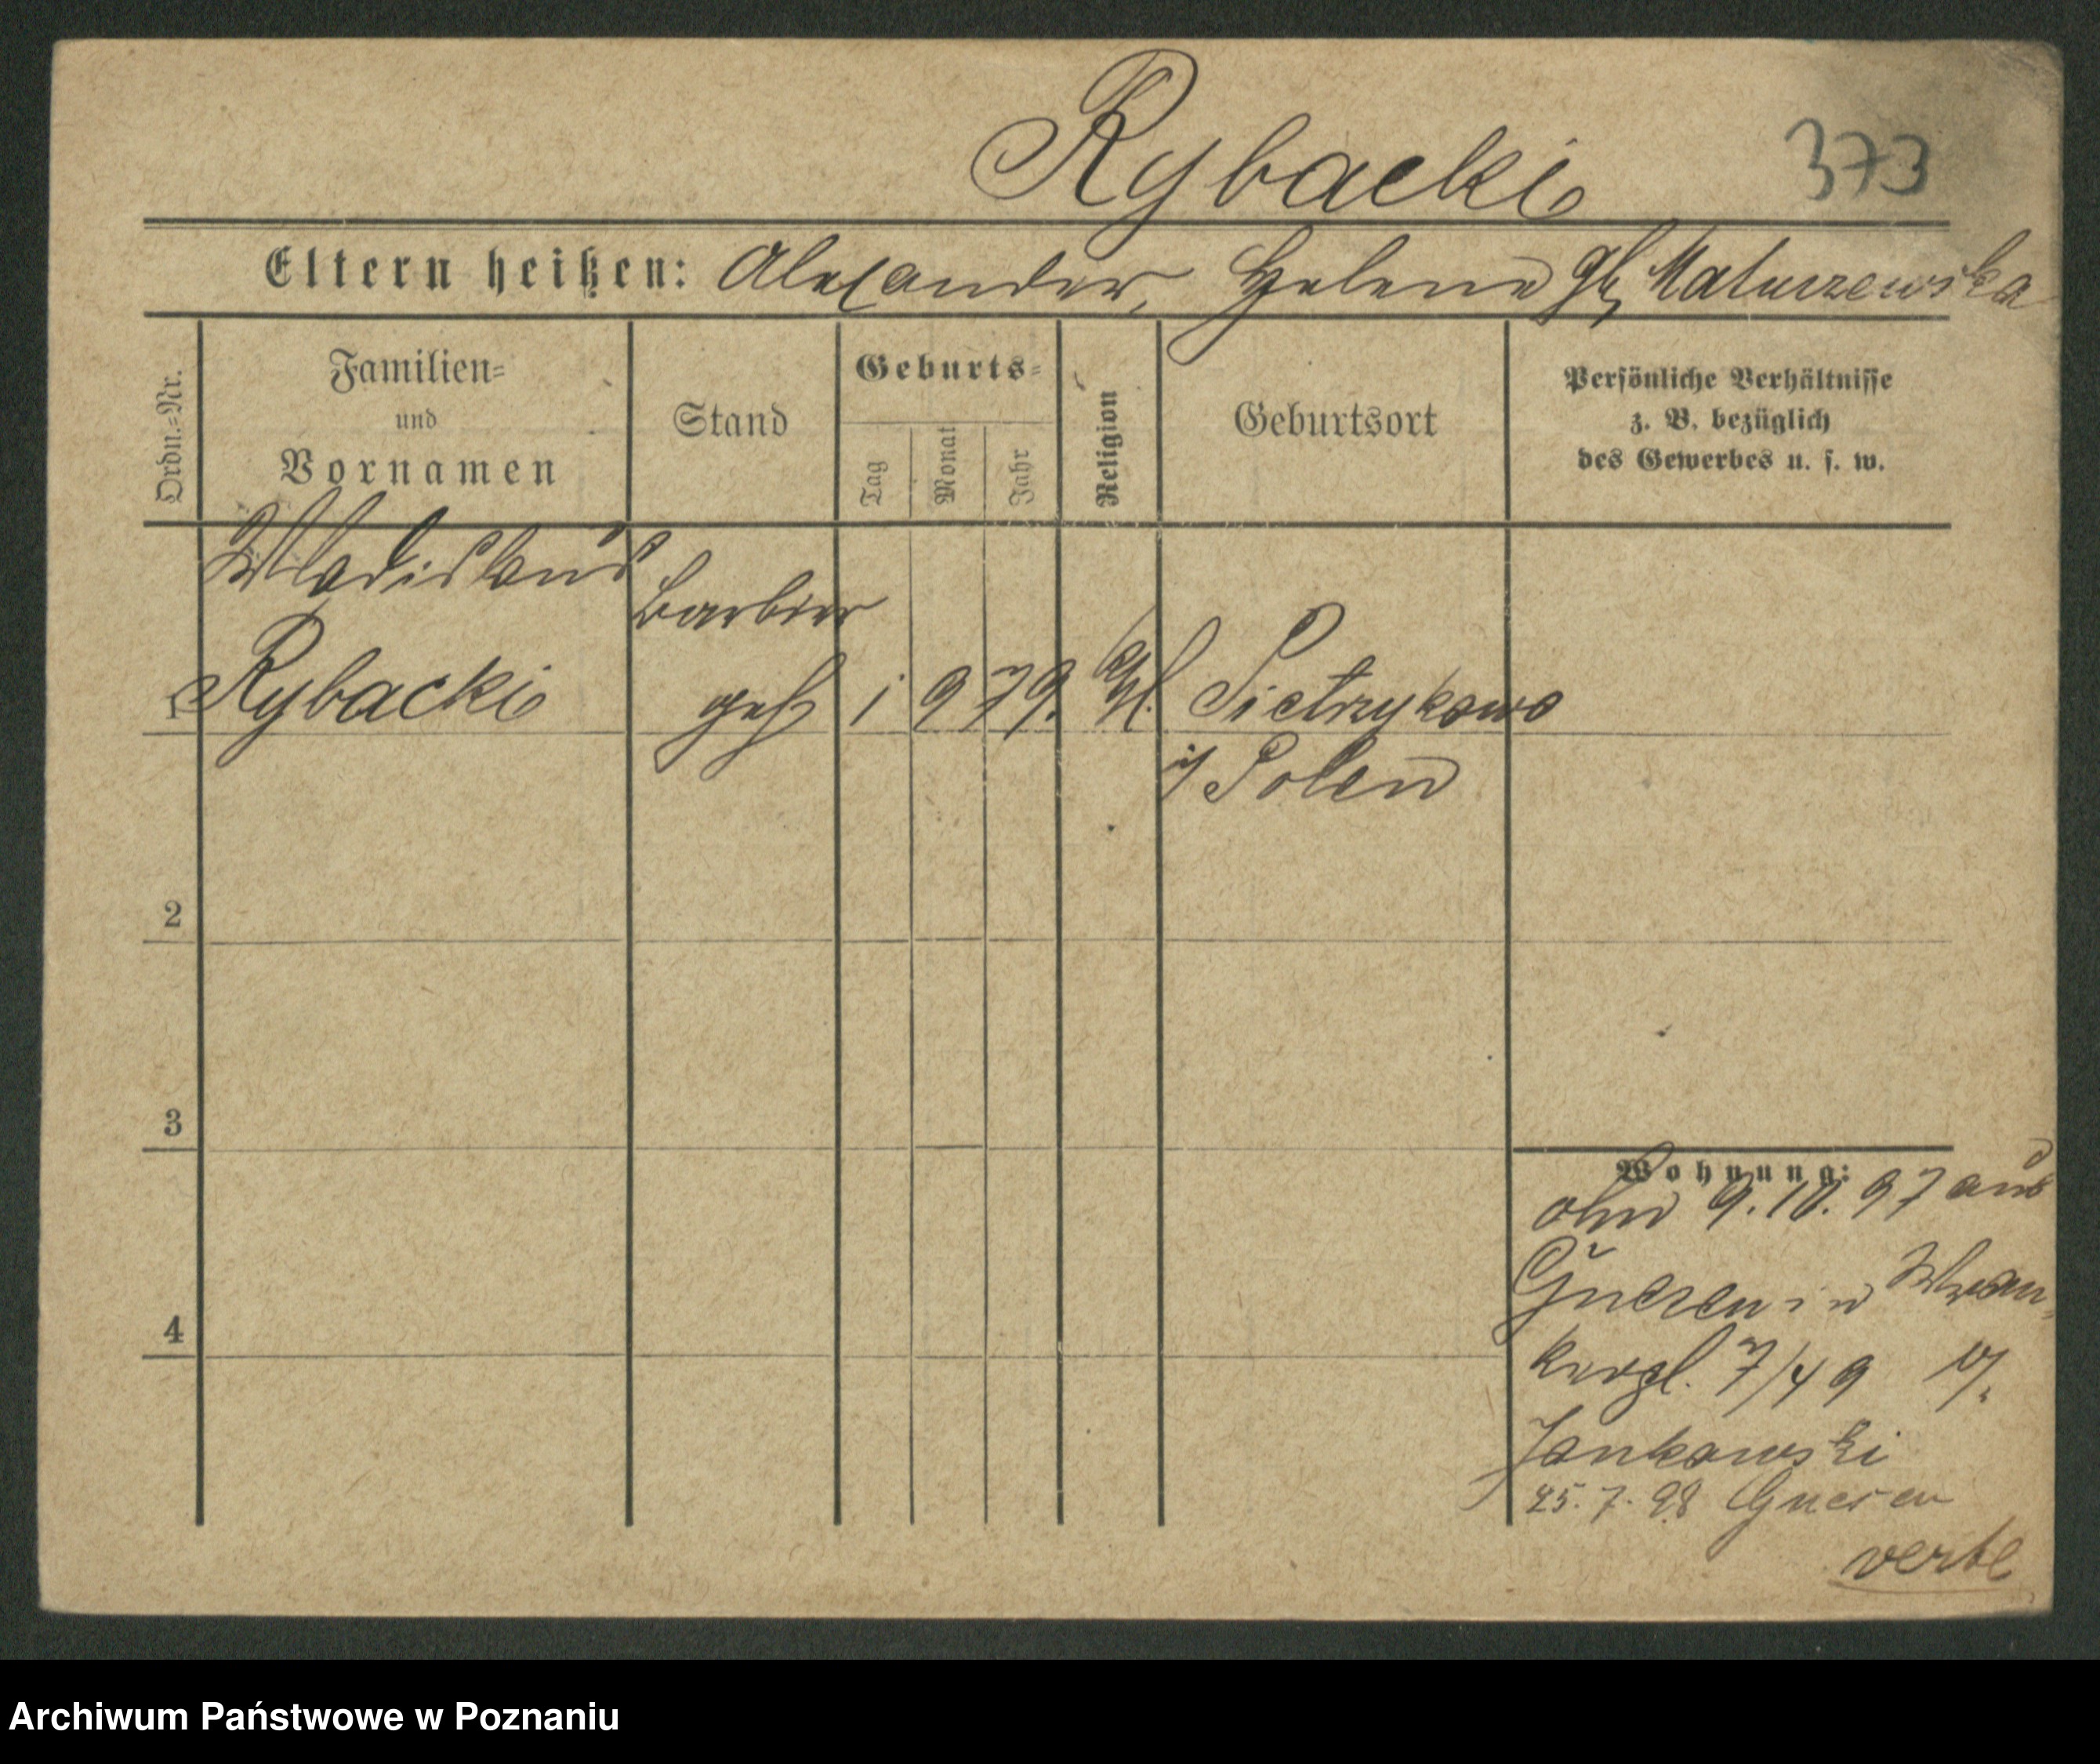 Rybacki 373
Eltern heißen: Alexander, Helene gb Matuszewska
Ordn.-Nr.
Familien-
und
Vornamen
Stand
Geburts-
Tag
Monat
Jahr
Religion
Geburtsort
Persönliche Verhältnisse
z. B. bezüglich
des Gewerbes u. s. w.
Wladislaus
Barbier
1 Rybacki geh 1 9 79. Pietrzykowo
i/ Polen
2
3
4
Wohnung:
9.10.97 aus
Gnesen in
7/49
Jankowski
25.7.98 Gnesen
verte
Archiwum Państwowe w Poznaniu